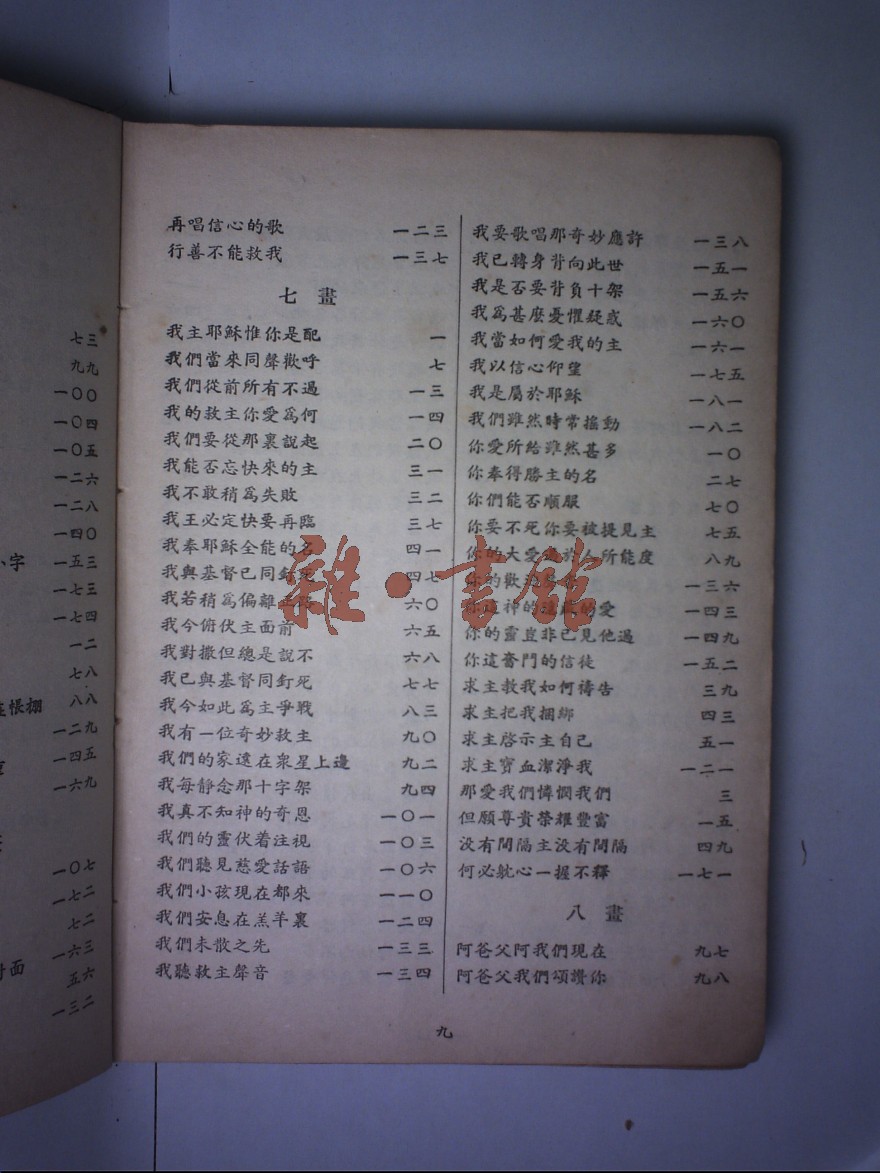 七三
九九
一〇〇
一〇四
一〇五
一二六
一二八
一四〇
小字 一五三
一七三
一七四
一二
七八
帳棚 八八
一二九
一四五
一六九
一〇七
一七二
七二
一六三
對面 五六
一三二
再唱信心的歌 一二三
行善不能救我 一三七
七 畫
我主耶穌惟你是配 一
我們當來同聲歡呼 七
我們從前所有不過 一三
我的救主你愛爲何 一四
我們要從那裏說起 二〇
我能否忘快來的主 三一
我不敢稍爲失敗 三二
我王必定快要再臨 三七
我奉耶穌全能的名 四一
我與基督已同釘死 四七
我若稍爲偏離正路 六〇
我今俯伏主面前 六五
我對撒但總是說不 六八
我已與基督同釘死 七七
我今如此爲主爭戰 八三
我有一位奇妙救主 九〇
我們的家遠在衆星上邊 九二
我每靜念那十字架 九四
我真不知神的奇恩 一〇一
我們的靈伏着注視 一〇三
我們聽見慈愛話語 一〇六
我們小孩現在都來 一一〇
我們安息在羔羊裏 一二四
我們未散之先 一三三
我聽救主聲音 一三四
我要歌唱那奇妙應許 一三八
我已轉身背向此世 一五一
我是否要背負十架 一五六
我爲甚麽憂懼疑惑 一六〇
我當如何愛我的主 一六一
我以信心仰望 一七五
我是屬於耶穌 一八一
我們雖然時常搖動 一八二
你愛所給雖然甚多 一〇
你奉得勝主的名 二七
你們能否順服 七〇
你要不死你要被提見主 七五
你的大愛過於人所能度 八九
你的歡 一三六
你這神的 的愛 一四三
你的靈豈非已見他過 一四九
你這奮鬥的信徒 一五二
求主救我如何禱告 三九
求主把我捆綁 四三
求主啓示主自己 五一
求主寶血潔淨我 一二一
那愛我們憐憫我們 三
但願尊貴榮耀豐富 一五
没有間隔主没有間隔 四九
何必躭心一握不釋 一七一
八 畫
阿爸父阿我們現在 九七
阿爸父我們頌讚你 九八
九
雜·書館